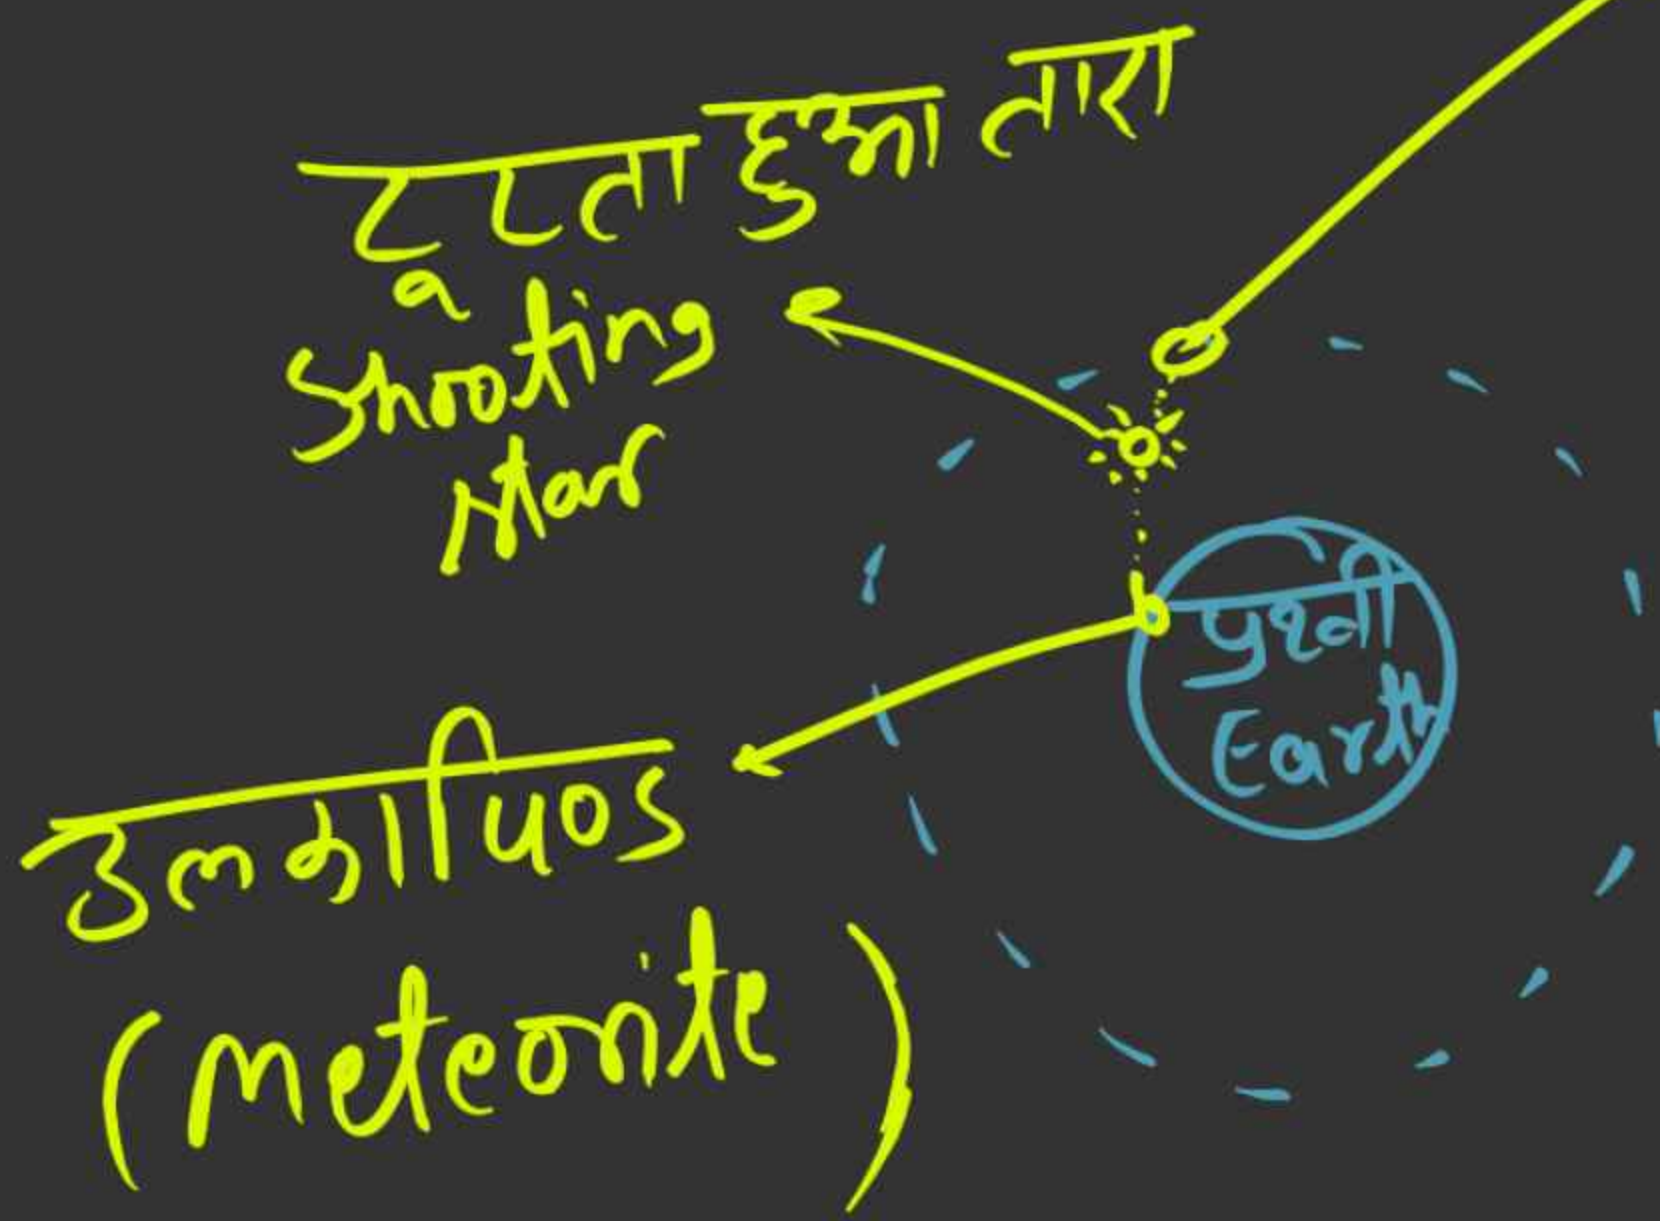 टूटता हुआ तारा
Shooting
star
पृथ्वी
Earth
उल्कापिण्ड
(Meteorite)